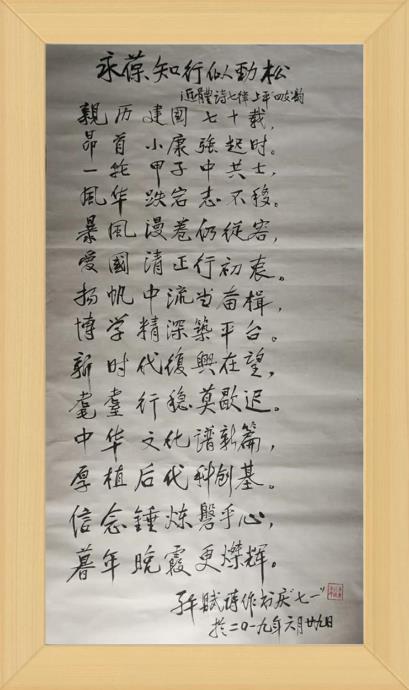 永葆知行似勁松
近體诗七律上平"四支韵
親历建國七十載,
昂首小康強起时。
一轮甲子中共士,
風华跌宕志不移。
暴風漫卷仍從容,
愛國清正行初衷。
扬帆中流当奋楫,
博学精深築平台。
新时代復興在望,
耄耋行稳莫歇迟。
中华文化谱新篇,
厚植后代科创基。
信念锤炼磐乎心,
暮年晚霞更燦辉。
賦诗作书庆"七一"
於二〇一九年六月廿九日